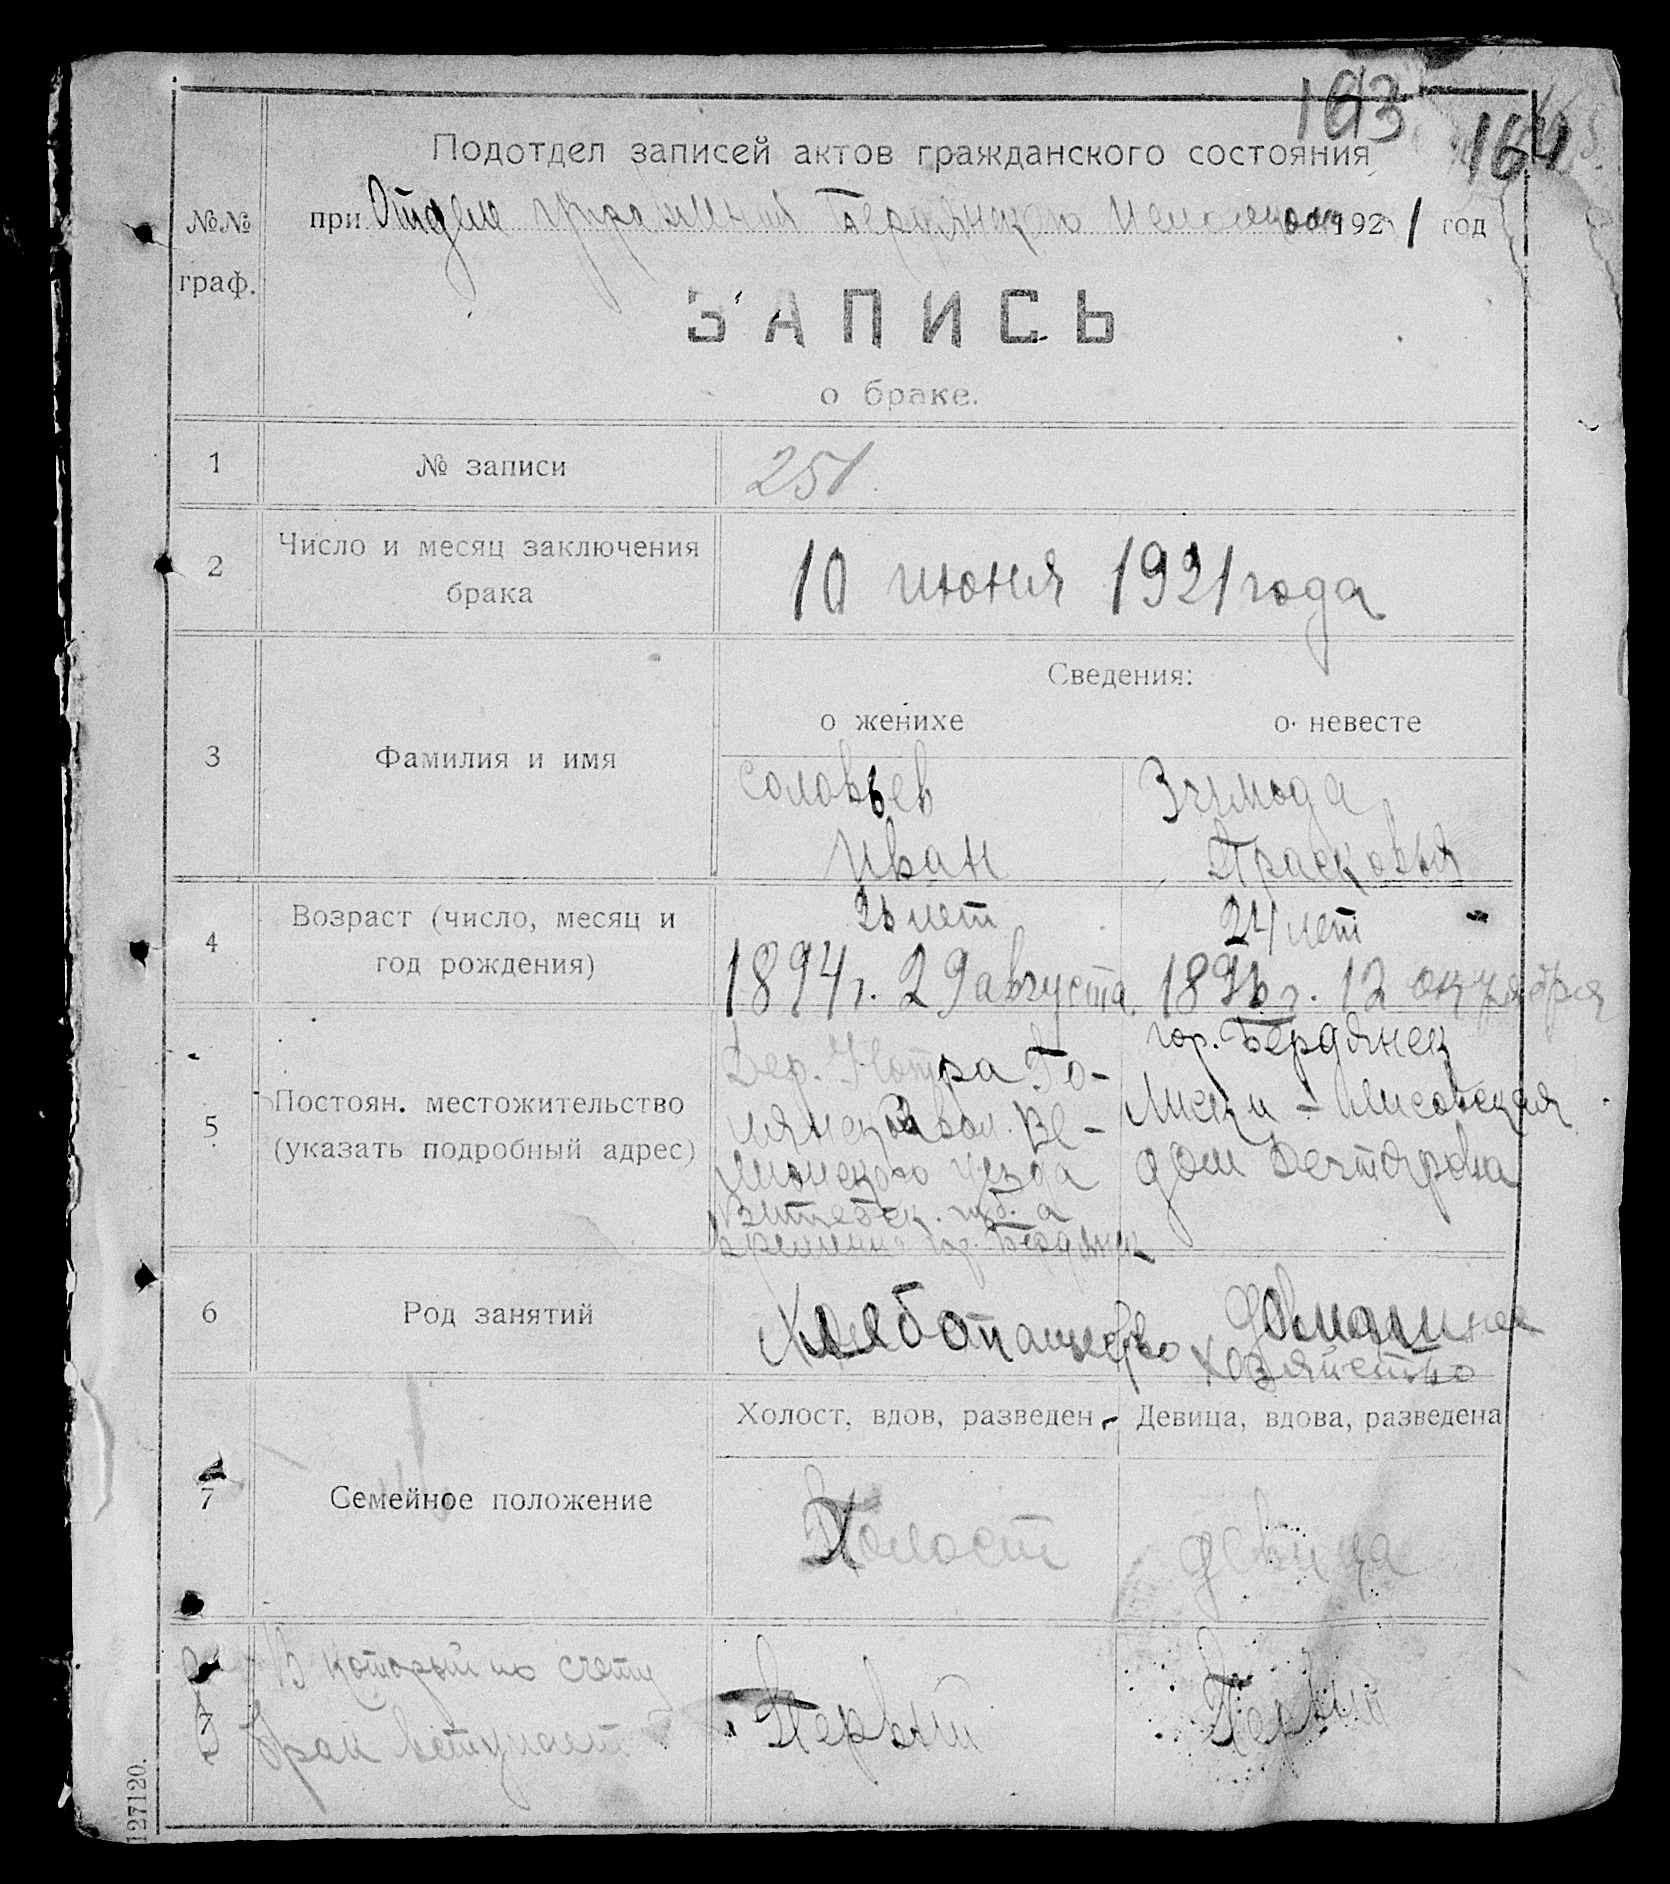 163
164
Подотдел записей актов гражданского состояния
№№ граф.
при Отделе управления Бердянского 1921 год
ЗАПИСЬ
о браке.
1 № записи 251.
2 Число и месяц заключения брака 10 июня 1921 года
Сведения:
о женихе о невесте
3 Фамилия и имя
Соловьев
Иван Прасковья
4 Возраст (число, месяц и год рождения)
26 лет 24 лет
1894 г. 29 августа 1896 г. 12 октября
5 Постоян. местожительство (указать подробный адрес)
Дер. гор. Бердянск
вол. Ве- Лиски - Лисовская
уезда дом
Витебск. губ. а
временно гор. Бердянск
6 Род занятий
Хлебопашество домашнее
хозяйство
Холост, вдов, разведен Девица, вдова, разведена
7 Семейное положение
Холост девица
В который по счету
брак вступает
Первый Первый
127120.